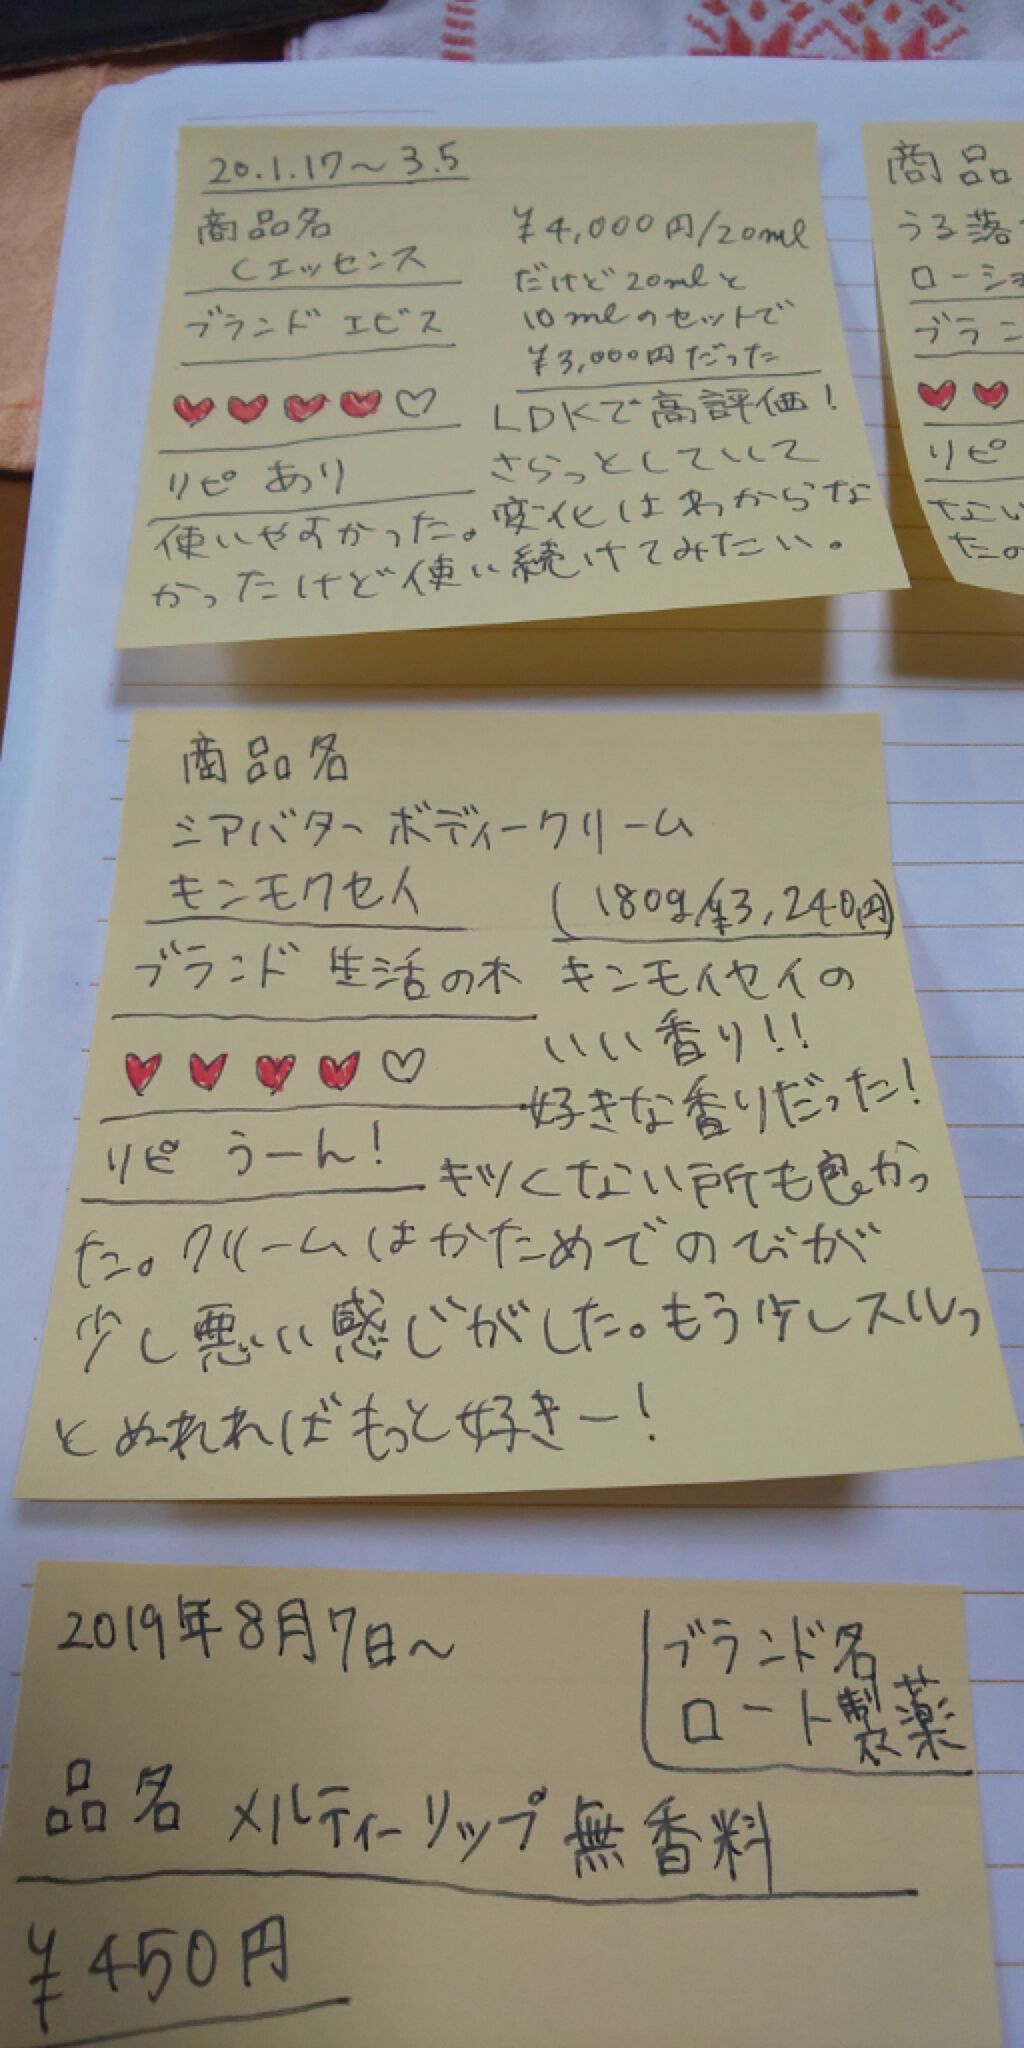 20.1.17～3.5
商品名
Cエッセンス
ブランド エビス
♥♥♥♥♡
リピ あり
¥4,000円/20ml
だけど20mlと
10mlのセットで
¥3,000円だった
LDKで高評価!
さらっとしていして
使いやすかった。変化はわからな
かったけど使い続けてみたい。
商品
うる落
ローショ
ブラン
♥♥
リピ
ない
たの
商品名
シアバターボディークリーム
キンモクセイ
(180g/¥3,240円)
ブランド 生活の木
♥♥♥♥♡
リピ うーん!
キンモイセイの
いい香り!!
好きな香りだった!
キツくない所も良かっ
た。クリームはかためでのびが
少し悪い感じがした。もう少しスルっ
とぬれればもっと好きー!
2019年8月7日～
ブランド名
ロート製薬
品名 メルティーリップ 無香料
¥450円